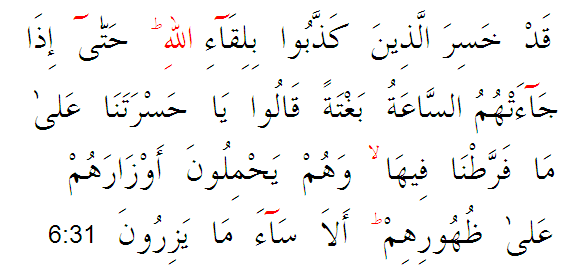 قَدْ خَسِرَ الَّذِينَ كَذَّبُوا بِلِقَآءِ اللهِ ؕ حَتّٰىٓ إِذَا
جَآءَتْهُمُ السَّاعَةُ بَغْتَةً قَالُوا يَا حَسْرَتَنَا عَلىٰ
مَا فَرَّطْنَا فِيهَا ۙ وَهُمْ يَحْمِلُونَ أَوْزَارَهُمْ
عَلىٰ ظُهُورِهِمْ ؕ أَلاَ سَآءَ مَا يَزِرُونَ 6:31